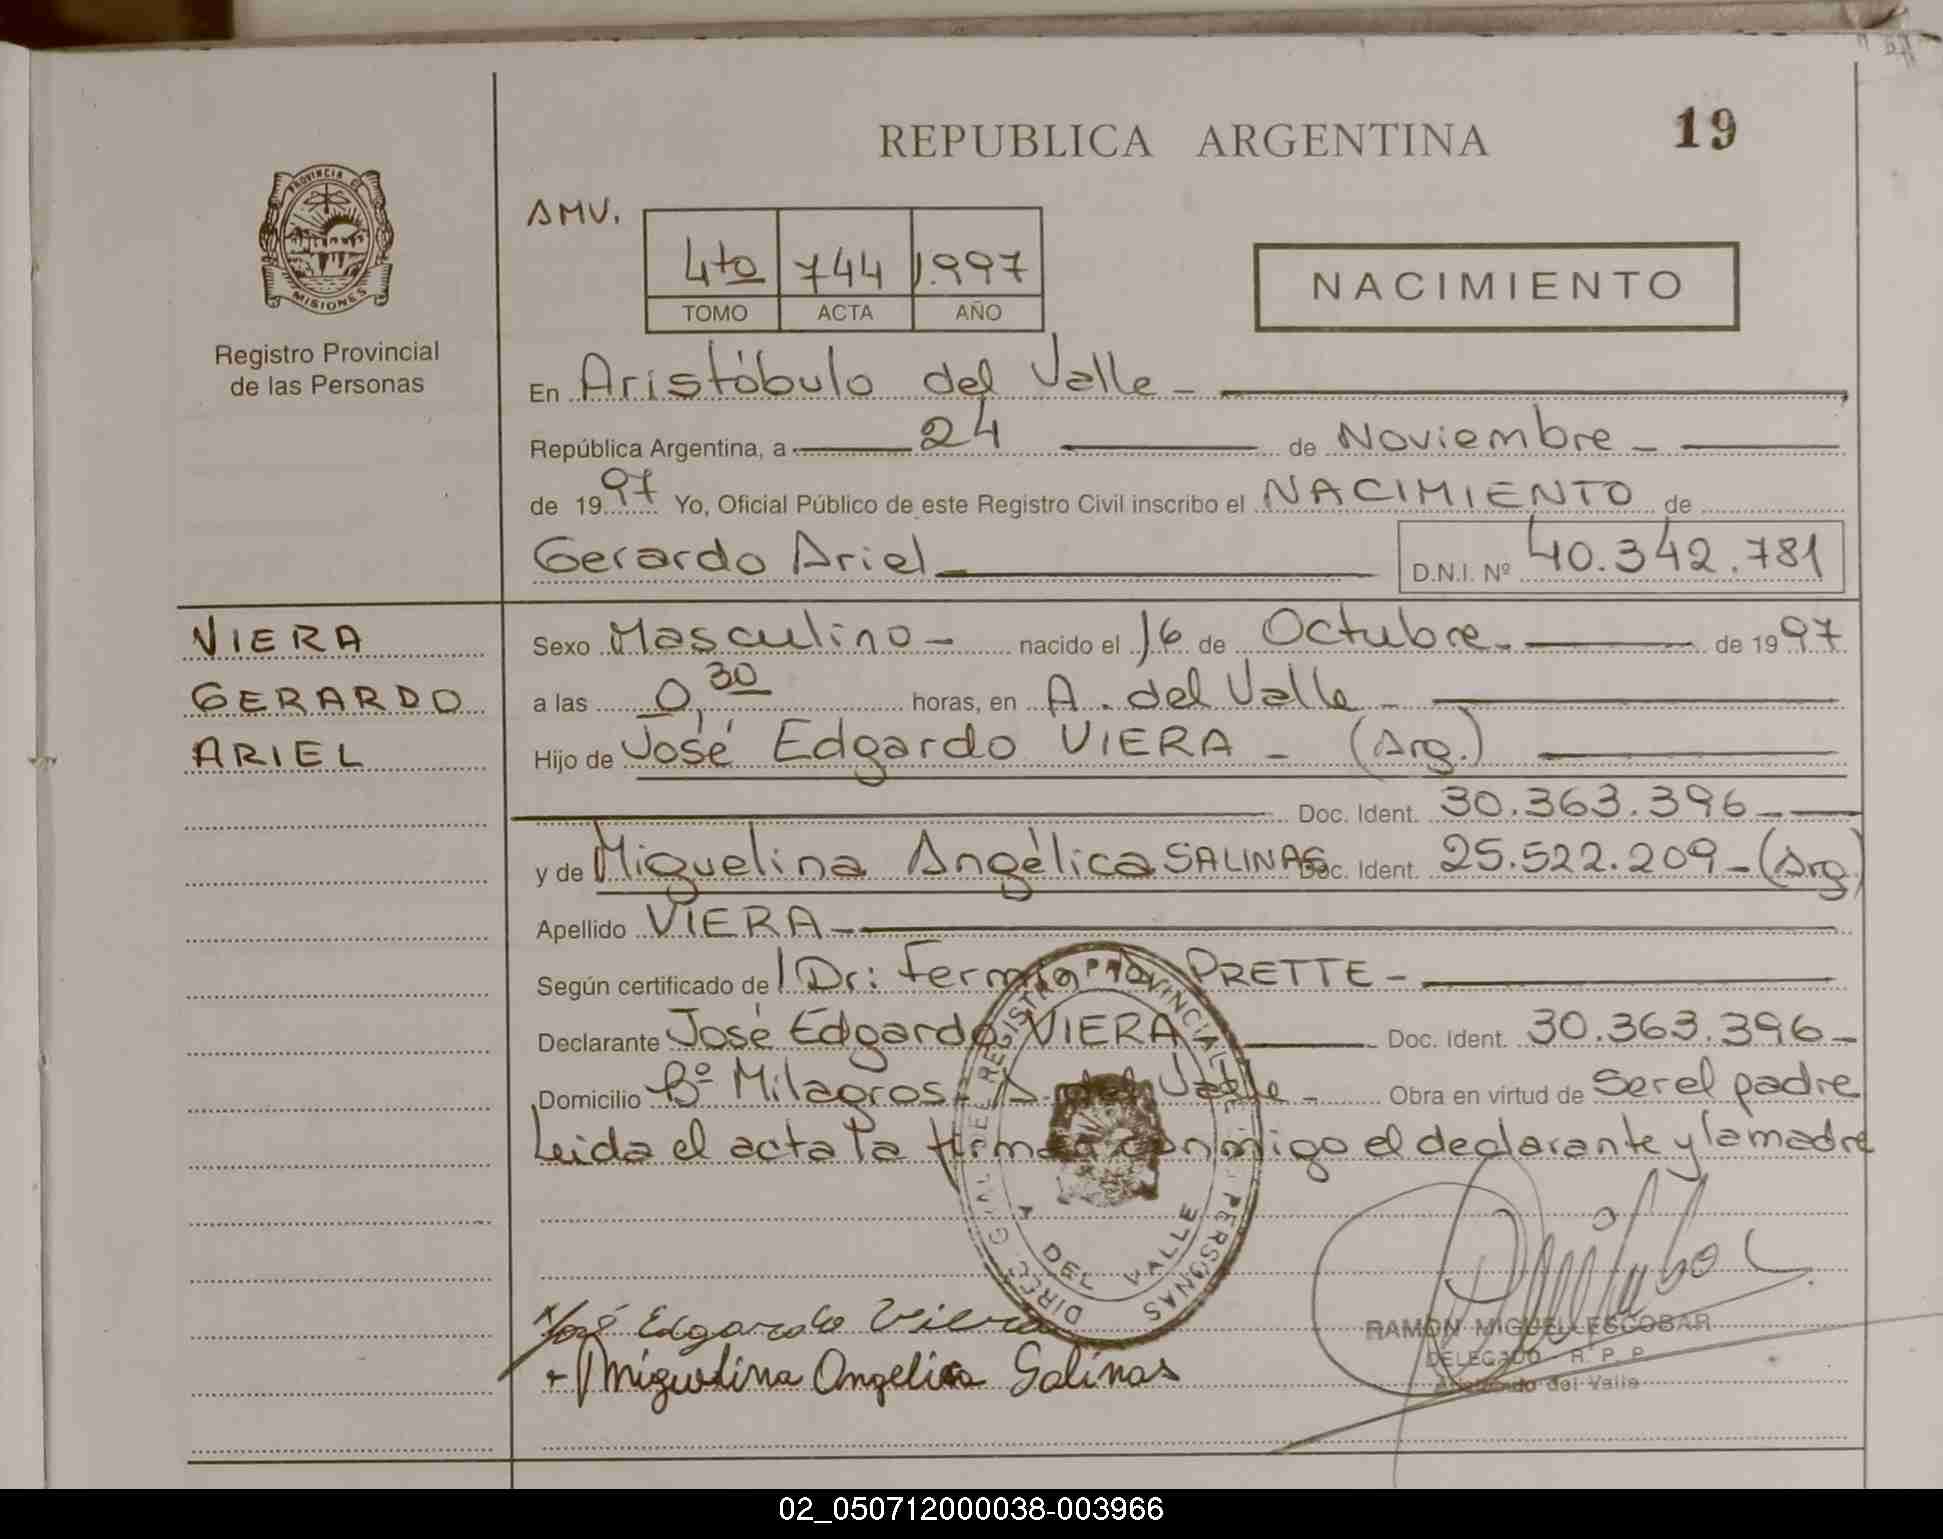 REPUBLICA ARGENTINA
19
PROVINCIA DE
MISIONES
Registro Provincial
de las Personas
AMV.
4to 744 1.997
TOMO ACTA AÑO
NACIMIENTO
En Aristóbulo del Valle -
República Argentina, a 24 de Noviembre -
de 1997 Yo, Oficial Público de este Registro Civil inscribo el NACIMIENTO de
Gerardo Ariel
D.N.I. Nº 40.342.781
VIERA
GERARDO
ARIEL
Sexo Masculino - nacido el 16 de Octubre - de 1997
a las 0,30 horas, en A. del Valle -
Hijo de José Edgardo VIERA - (Arg.)
Doc. Ident. 30.363.396 -
y de Miguelina Angélica SALINAS Doc. Ident. 25.522.209 - (Arg.)
Apellido VIERA -
Según certificado de Dr: Fermín PRETTE -
Declarante José Edgardo VIERA - Doc. Ident. 30.363.396 -
Domicilio Bº Milagros - A. del Valle - Obra en virtud de Ser el padre
Leida el acta la firman conmigo el declarante y la madre
DIREC. GRAL DEL REGISTRO PROVINCIAL DE PERSONAS
A DEL VALLE
José Edgardo Viera
+ Miguelina Angelica Salinas
RAMON MIGUEL ESCOBAR
DELEGADO - R. P. P.
Aristobulo del Valle
02_050712000038-003966